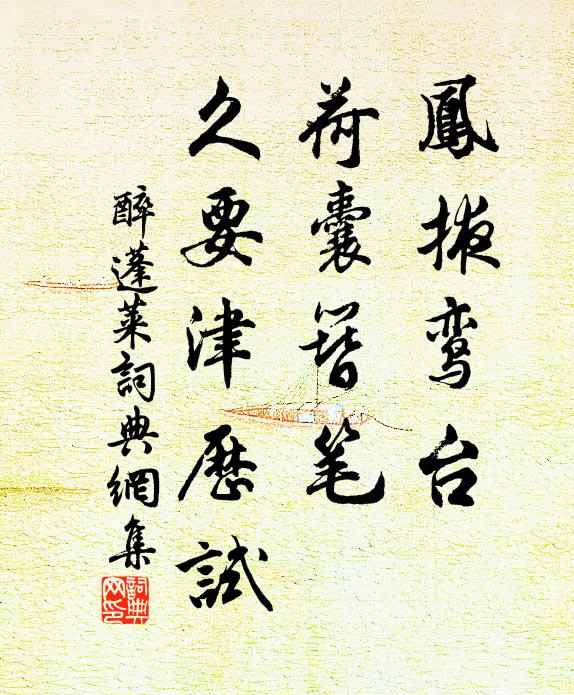 鳳掖鸾台
荷囊簪笔
久要津歴試
醉蓬莱詞典網集
詞典网印